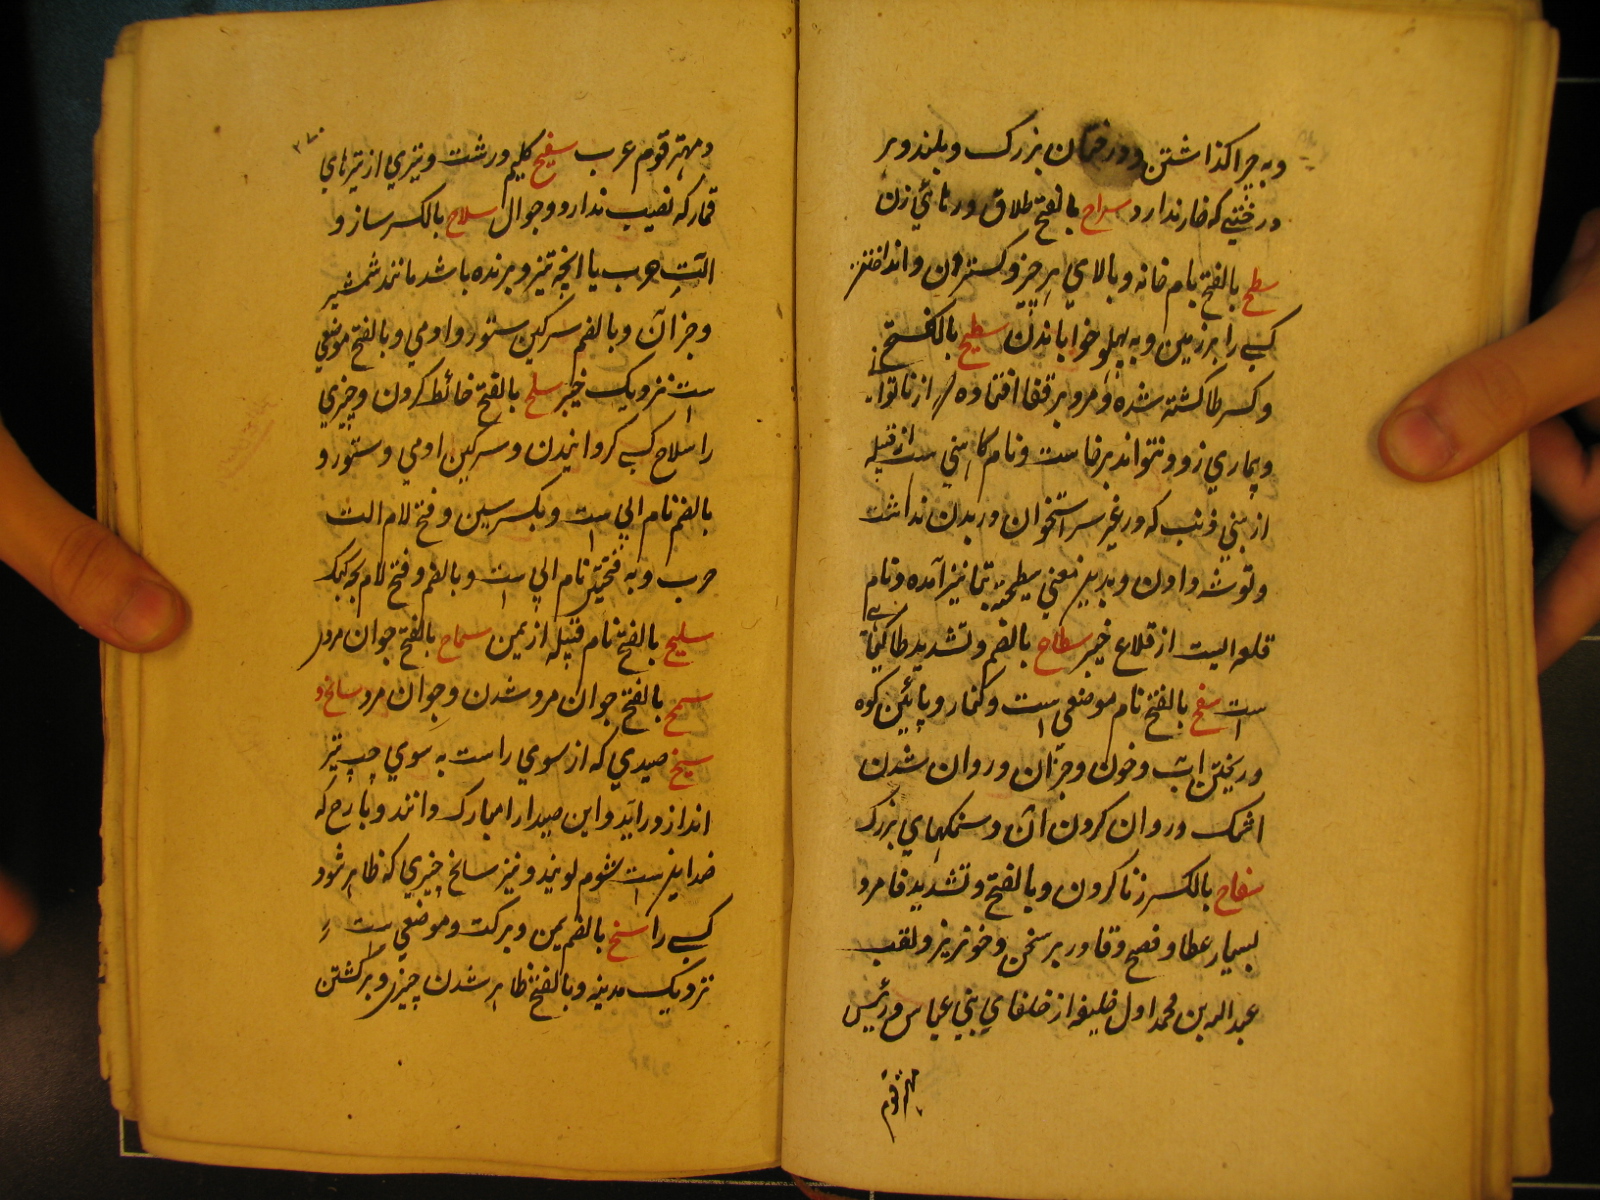 و به چرا گذاشتن و درختان بزرگ و بلند و بر
درختی که خار ندارد سراح بالفتح طلاق و رهائی زن
سطح بالفتح بام خانه و بالای هر چیز و گسترانیدن و انداختن
کسی را بر زمین و به پهلو خوابانیدن سطیح بالفتح
و کسر طا کشته شده و مرد بر قفا افتاده از ناتوانی
و بیماری زود نتواند برخاست و نام کاهنی ست از قبیله
از بنی ذئب که در غیر سر استخوان در بدن نداشت
و توشه دان و بدین معنی سطیحة بتا نیز آمده و نام
قلعه ایست از قلاع خیبر سطاح بالضم و تشدید طا گیاهی
است سفح بالفتح نام موضعی است و کنار و پائین کوه
و ریختن اشک و خون و جز آن و روان شدن
اشک و روان کردن آن و سنگهای بزرگ
سفاح بالکسر زنا کردن و بالفتح و تشدید فا مرد
بسیار عطا و فصیح و قادر بر سخن و خونریز و لقب
عبدالله بن محمد اول خلیفه از خلفای بنی عباس و رئیس
مهتر قوم
و مهتر قوم عرب سفیح گلیم درشت و تیری از تیرهای
قمار که نصیب ندارد و جوال سلاح بالکسر ساز و
آلت حرب یا آنچه تیز و برنده باشد مانند شمشیر
و جز آن و بالضم سرگین ستور و آدمی و بالفتح موضعی
ست نزدیک خیبر سلح بالفتح غائط کردن و چیزی
را سلاح کسی گردانیدن و سرگین آدمی و ستور و
بالضم نام آبی ست و بکسر سین و فتح لام آلت
حرب و به فتحتین نام آبی ست و بالضم و فتح لام بچه کبک
سلیح بالفتح نام قبیله از یمن سماح بالفتح جوان مردی
سمح بالفتح جوان مرد شدن و جوان مرد سانح و
سنیح صیدی که از سوی راست به سوی چپ تیر
انداز در آید و این صید را مبارک دانند و بارح که
ضد این ست شوم گویند و نیز سانح چیزی که ظاهر شود
کسی را سنح بالضم یمن و برکت و موضعی ست
نزدیک مدینه و بالفتح ظاهر شدن چیزی و برگشتن